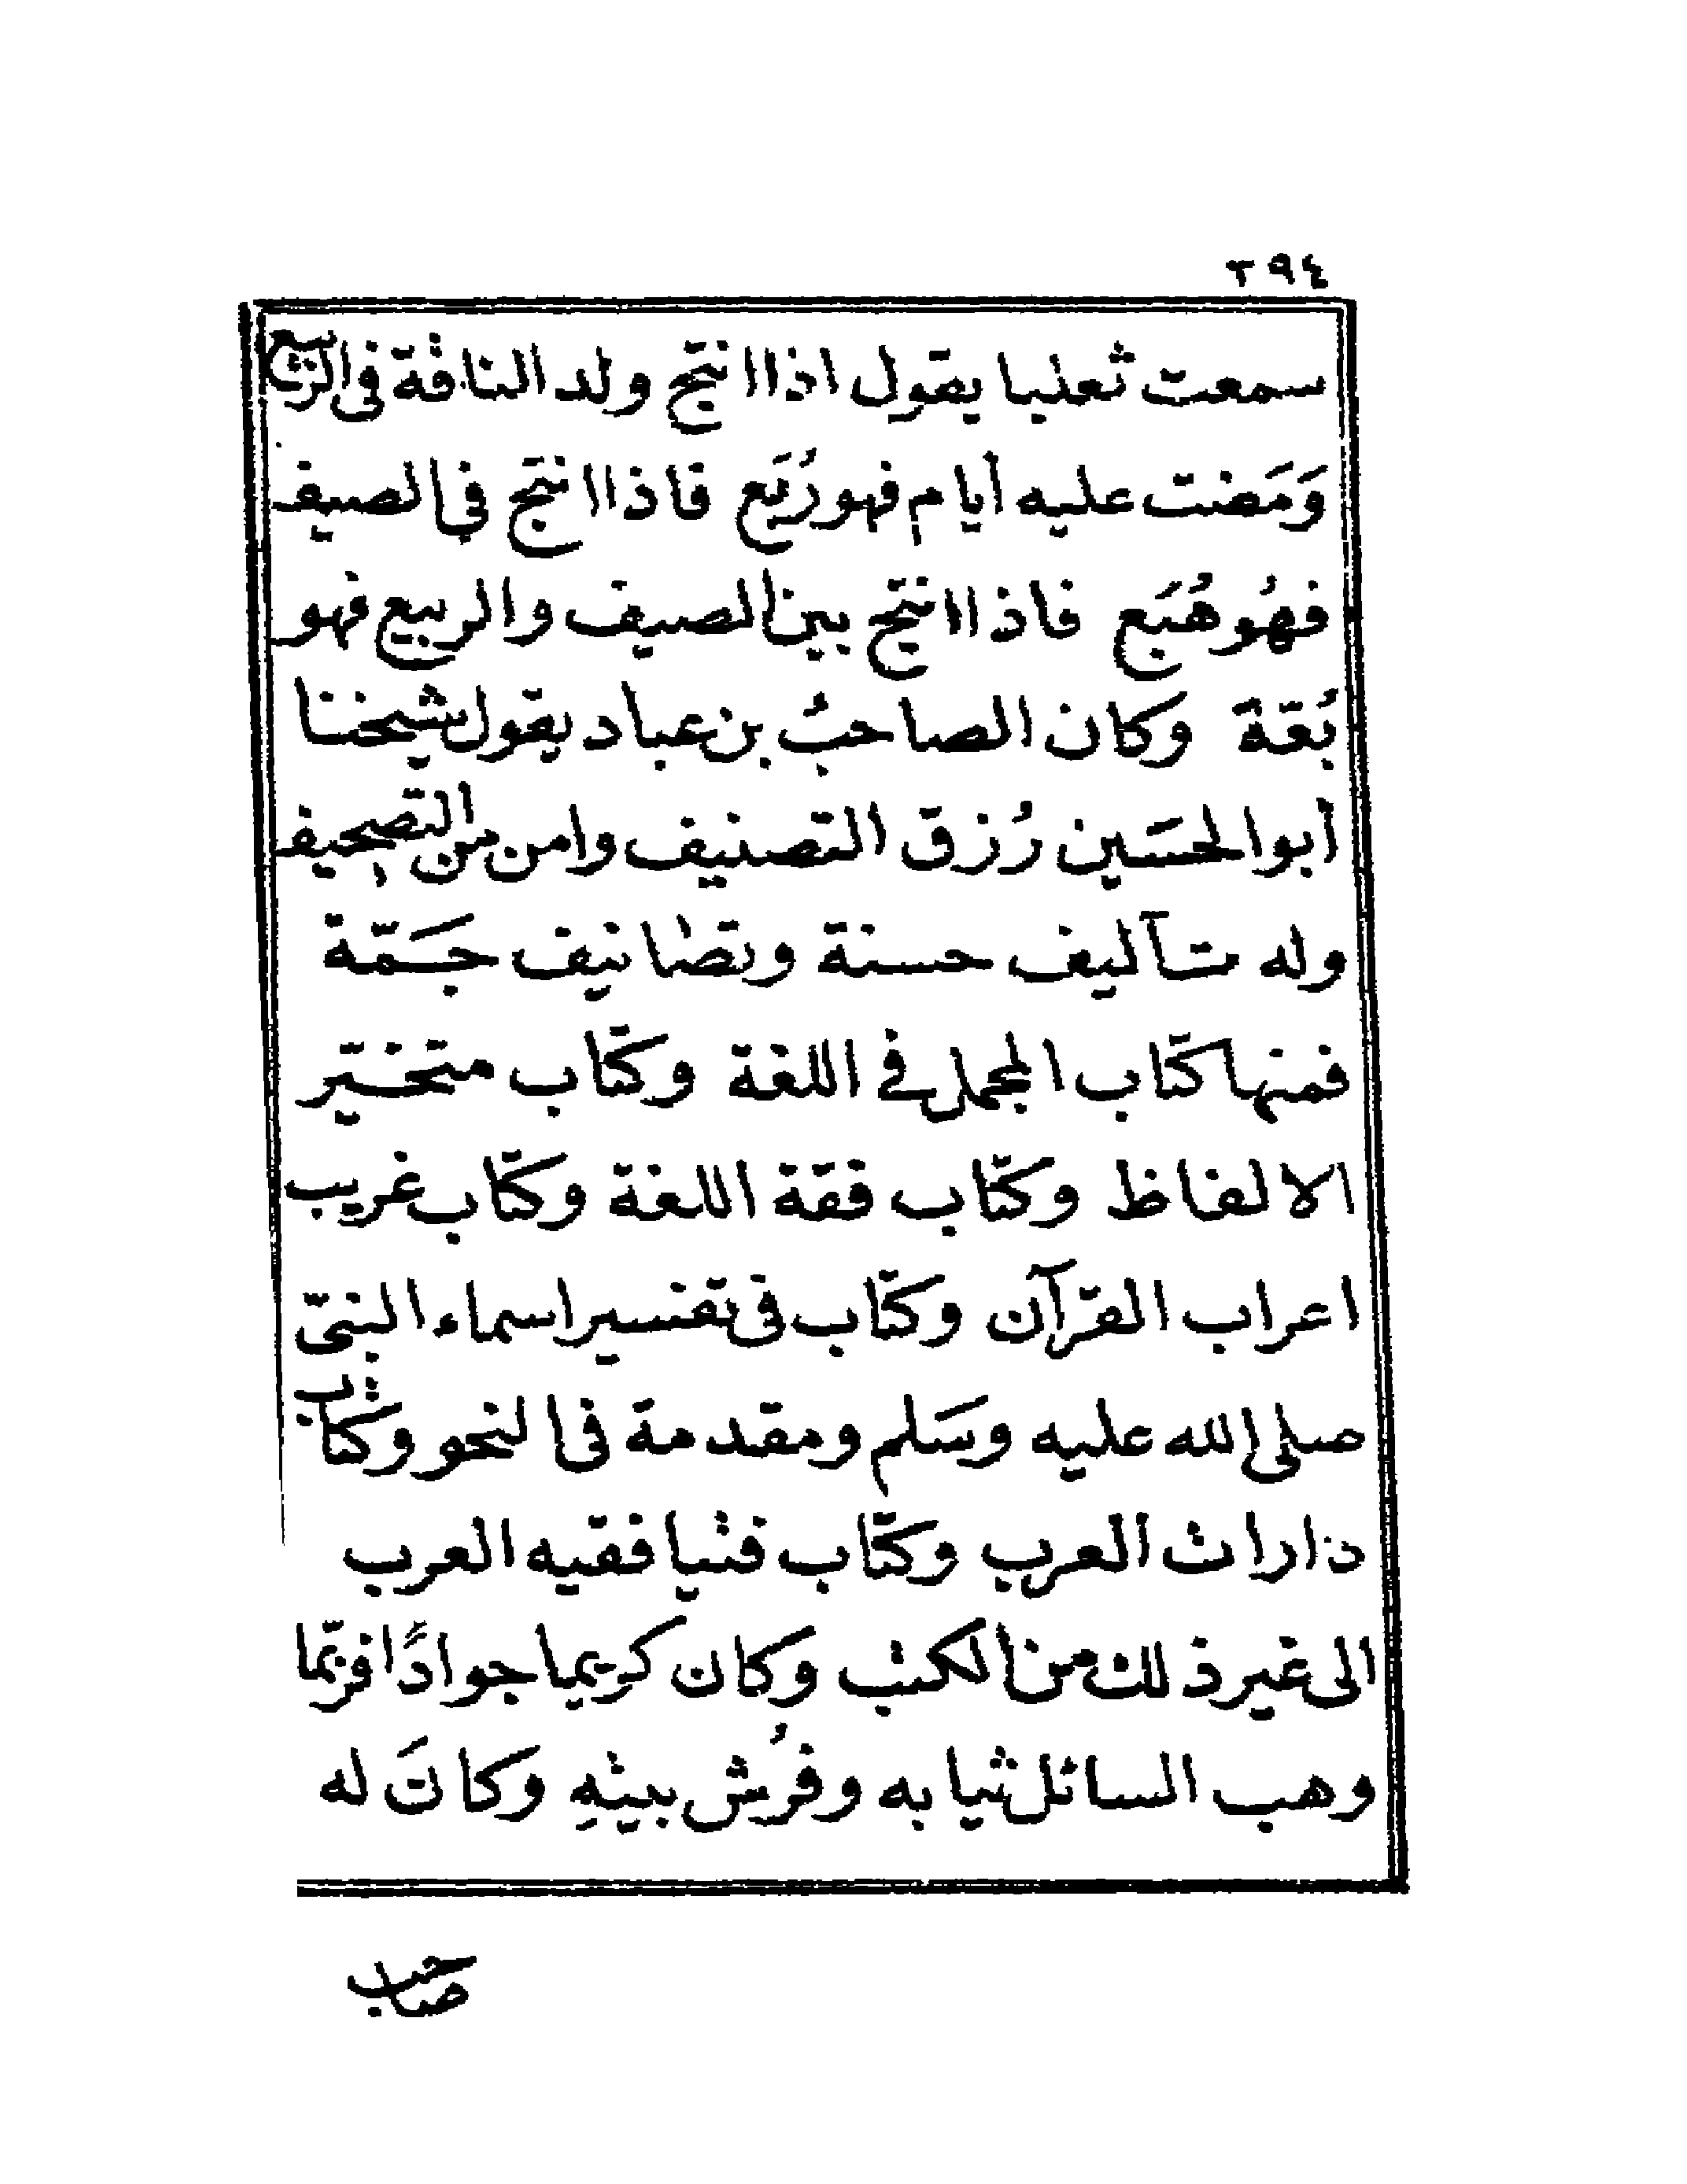 ٣٩٤
سمعت ثعلبا يقول اذا انتج ولد الناقة فى الربيع
وَمَضت عليه أيام فهو رُبَع فاذا انتج فى الصيف
فهُو هُبَع فاذا انتج بين الصيف والربيع فهو
بُقة وكان الصاحبُ بن عباد يقول شيخنا
أبو الحسَين رُزق التصنيف وامن من التصحيف
وله تآليف حسنة وتصانيف جَمّة
فمنها كتاب المجمل فى اللغة وكتاب متخير
الالفاظ وكتاب فقة اللغة وكتاب غريب
اعراب القرآن وكتاب فى تفسير اسماء النبىّ
صلى الله عليه وسَلم ومقدمة فى النحو وكتاب
دارات العرب وكتاب فتيا فقيه العرب
الى غير ذلك من الكتب وكان كريما جوادًا فربّما
وهب السائل ثيابه وفُرش بيتهِ وكانَ له
صاحب